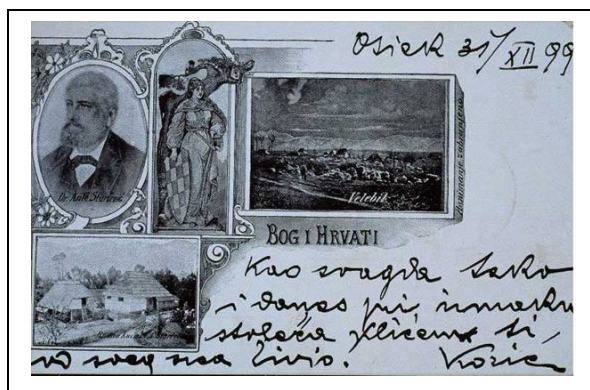 Osiek 31/XII 99
Dr. Ante Starčević
Velebit
Snimanje zabranjeno
BOG I HRVATI
Kao svagda tako
i danas pri izmaku
stoleća kličem ti,
od sveg srca živio.